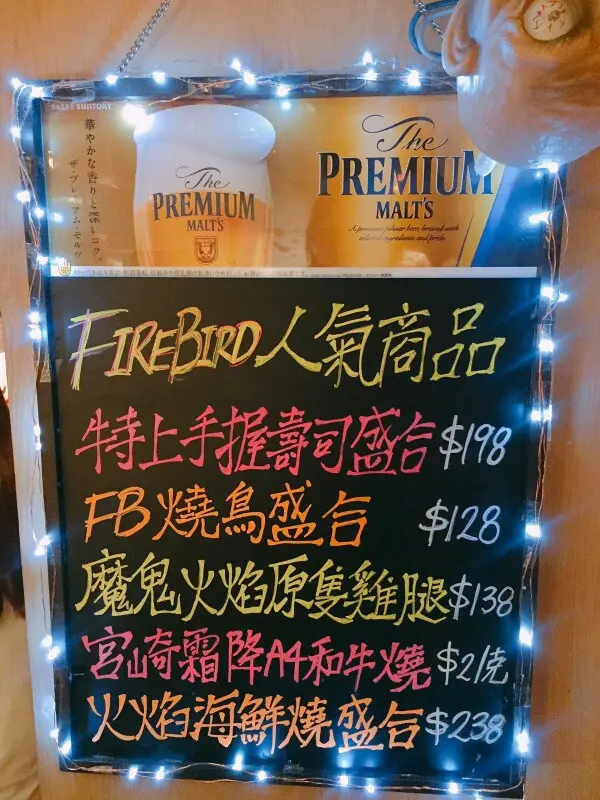 SUNTORY
華やかな香りと深いコク。
ザ・プレミアム・モルツ
The
PREMIUM
MALT'S
The
PREMIUM
MALT'S
A premium pilsner beer, brewed with
selected ingredients and pride.
FIREBIRD人氣商品
特上手握壽司盛合 $198
FB燒鳥盛合 $128
魔鬼火焰原隻雞腿 $138
宮崎霜降A4和牛燒 $2/克
火焰海鮮燒盛合 $238